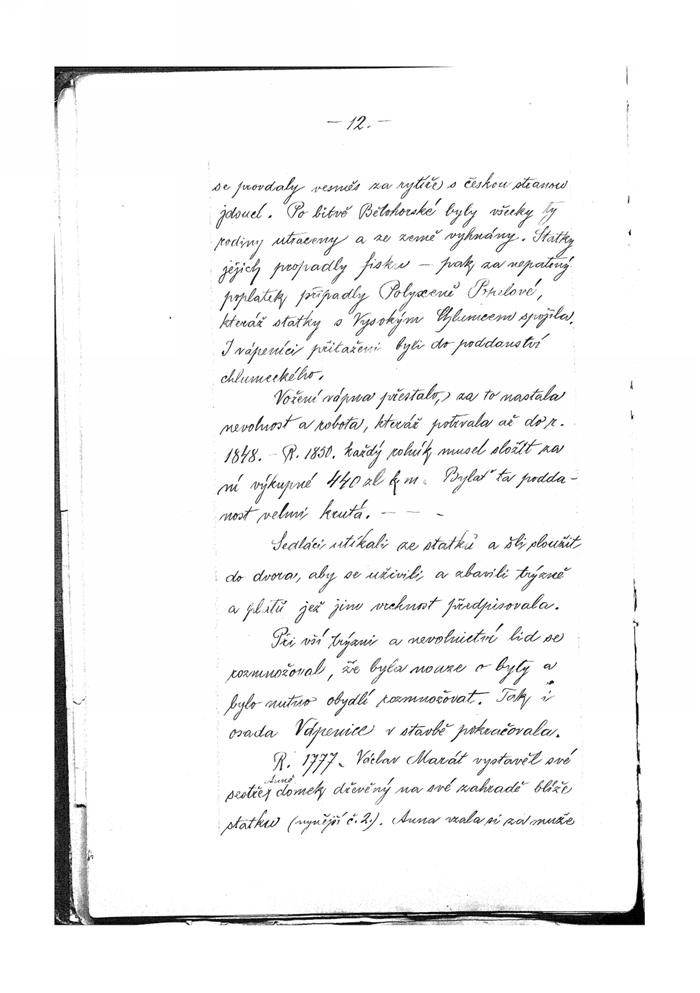 — 12. —
se provdaly vesměs za rytíře s českou stranou
jdoucí. Po bitvě Bělohorské byly všecky ty
rodiny utraceny a ze země vyhnány. Statky
jejich propadly fisku — pak za nepatrný
poplatek připadly Polyxeně
kteráž statky s Vysokým Chlumcem spojila.
I vápeníci přitaženi byli do poddanství
chlumeckého.
Vožení vápna přestalo, za to nastala
nevolnost a robota, kteráž potrvala až do r.
1848. — R. 1850. každý rolník musel složit za
ní výkupné 440 zl k m. Bylať ta podda-
nost velmi krutá. — — -
Sedláci utíkali ze statků a šli sloužit
do dvora, aby se uživili a zbavili trýzně
a platů jež jim vrchnost předpisovala.
Při vší trýzni a nevolnictví lid se
rozmnožoval, že byla nouze o byty a
bylo nutno obydlí rozmnožovat. Tak i
osada Vápenice v stavbě pokračovala.
R. 1777. Václav Marát vystavěl své
sestře Anně domek dřevěný na své zahradě blíže
statku (nynější č. 2.). Anna vzala si za muže